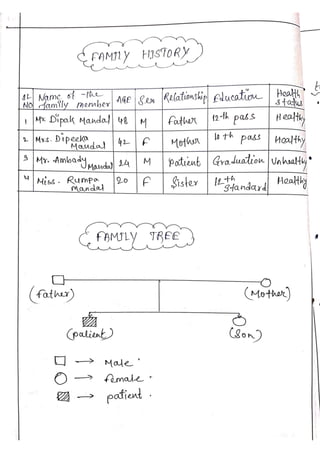 FAMILY HISTORY
SL NO Name of the family member AGE Sex Relationship Education Health status
1 Mr. Dipak Mandal 48 M Father 12-th pass Healthy
2 Mrs. Dipeeka Mandal 42 F Mother 10th pass Healthy
3 Mr. Ambady Mandal 24 M patient Graduation Unhealthy
4 Miss. Rumpa Mandal 20 F Sister 12th Standard Healthy
FAMILY TREE
(father) (Mother)
(patient) (Son)
→ Male.
→ female.
→ patient.